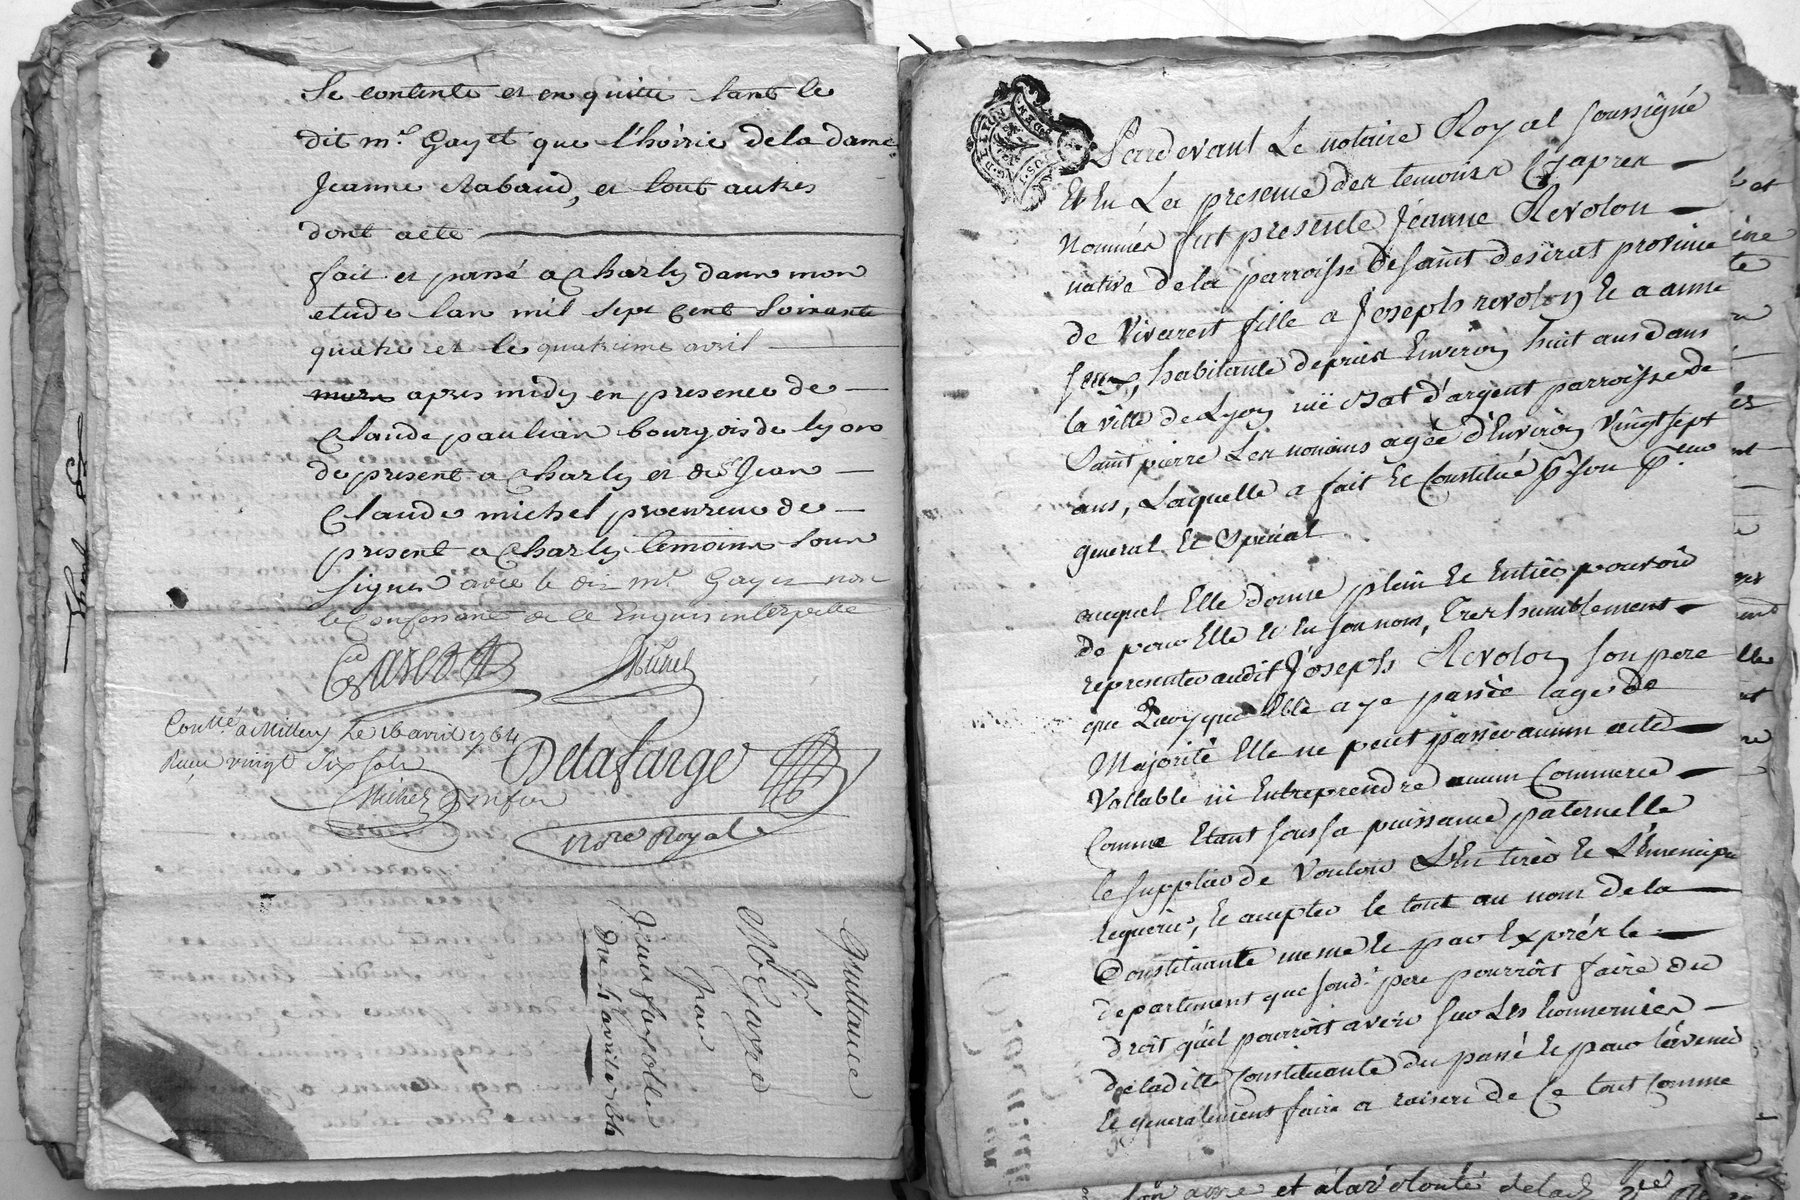 Se contente et en quitte tant le
dit mr. Gayet que l'hoirie de la dame
Jeanne Rabaud, et tout autres
dont acte
fait et passé a Charly dans mon
etude lan mil sept cent soixante
quatre et le quatrieme avril
apres midy en presence de
Claude paulian bourgois de lyon
de present a Charly et de Sr Jean
Claude michel de
present a Charly temoins sous
signes avec le dit mr Gayet non
le Confessant de ce Enquis interpellé
Gayet Michel
Conllé a Millery le 16 avril 1764
Reçu vingt six sols
Delafarge
Michel
nore Royal
Quittance
Pr
Mr Gayet
par
Jean
du 4 avril 1764
Pardevant Le notaire Royal soussigné
Et En La presence des temoins Cy apres
nommés fut presente Jeanne Revolon
native de la parroisse de saint desirat province
de Vivarest fille a Joseph revolon Et a anne
habitante depuis Environ huit ans dans
la ville de Lyon rüe plat d'argent parroisse de
Saint pierre Les nonains agée d'Environ Vingt sept
ans, Laquelle a fait Et Constitué pr. son
general Et Special
auquel Elle donne plein Et Entier pouvoir
de pour Elle Et En son nom, Tres humblement
representer audit Joseph Revolon son pere
que quoyque Elle aye passée lage de
Majorité Elle ne peut passer aucun acte
Vallable ni Entreprendre aucun Commerce
Comme Etant sous sa puissance paternelle
le supplier de Vouloir L'En tirer Et L'Emenciper
requerir, Et accepter le tout au nom de la
Constituante meme Et par Exprés le
departement que sond. pere pourroit faire du
droit qu'il pourroit avoir sur Les
de laditte Constituante du passé Et pour lavenir
Et generalement faire a raison de Ce tout Comme